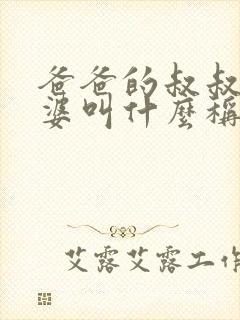 爸爸的叔叔
婆叫什麼稱
艾露艾露工作